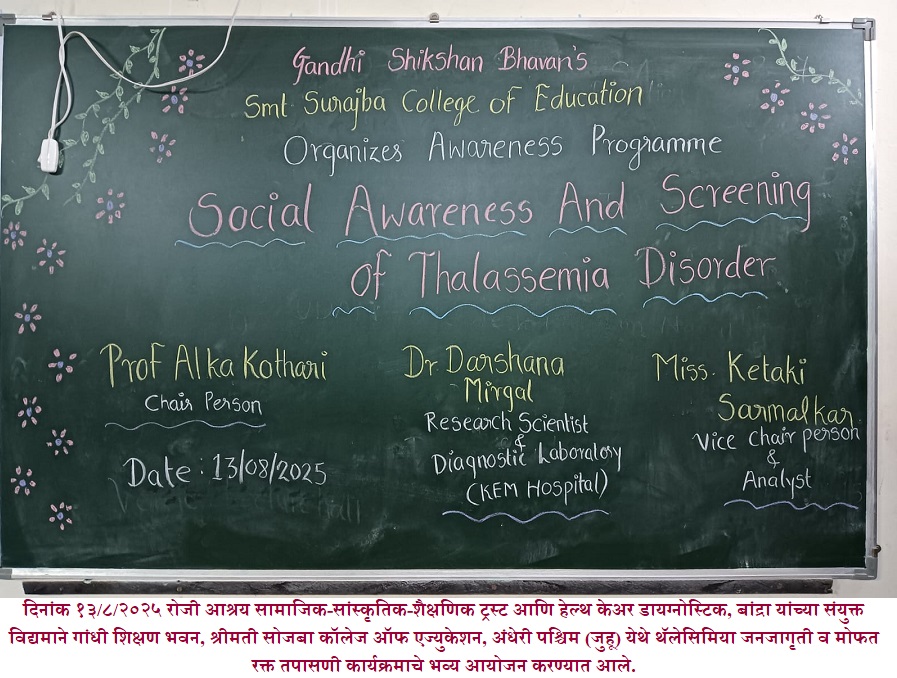 Gandhi Shikshan Bhavan's
Smt Surajba College of Education
Organizes Awareness Programme
Social Awareness And Screening
of Thalassemia Disorder
Prof Alka Kothari
Chair Person
Date : 13/08/2025
Dr Darshana
Mirgal
Research Scientist
&
Diagnostic Laboratory
(KEM Hospital)
Miss. Ketaki
Sarmalkar
Vice Chair person
&
Analyst
दिनांक १३/८/२०२५ रोजी आश्रय सामाजिक-सांस्कृतिक-शैक्षणिक ट्रस्ट आणि हेल्थ केअर डायग्नोस्टिक, बांद्रा यांच्या संयुक्त
विद्यमाने गांधी शिक्षण भवन, श्रीमती सोजबा कॉलेज ऑफ एज्युकेशन, अंधेरी पश्चिम (जुहू) येथे थॅलेसिमिया जनजागृती व मोफत
रक्त तपासणी कार्यक्रमाचे भव्य आयोजन करण्यात आले.